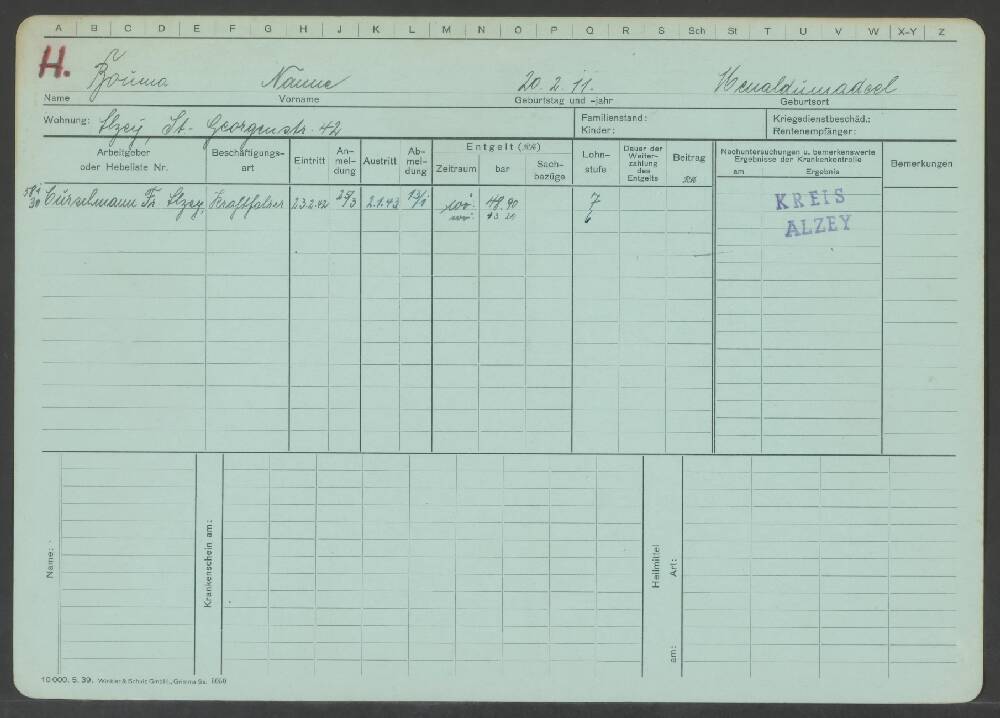 A B C D E F G H J K L M N O P Q R S Sch St T U V W X-Y Z
H.
Bouma Nanne 20. 2. 11. Menaldumadeel
Name Vorname Geburtstag und -jahr Geburtsort
Wohnung: Alzey, St. Georgenstr. 42 Familienstand: Kriegsdienstbeschäd.:
Kinder: Rentenempfänger:
Arbeitgeber oder Hebeliste Nr. Beschäftigungs-art Eintritt An-mel-dung Austritt Ab-mel-dung Entgelt (RM) Zeitraum bar Sach-bezüge Lohn-stufe Dauer der Weiter-zahlung des Entgelts Beitrag RM Nachuntersuchungen u. bemerkenswerte Ergebnisse der Krankenkontrolle am Ergebnis Bemerkungen
Fr. Alzey, Kraftfahrer 23.2.42 2.1.43 wö. 49.90 7
wö. 6
KREIS
ALZEY
Name:
Krankenschein am:
Heilmittel
Art:
am:
10 000. 5. 39. Winkler & Schütz GmbH., Grimma Sa.